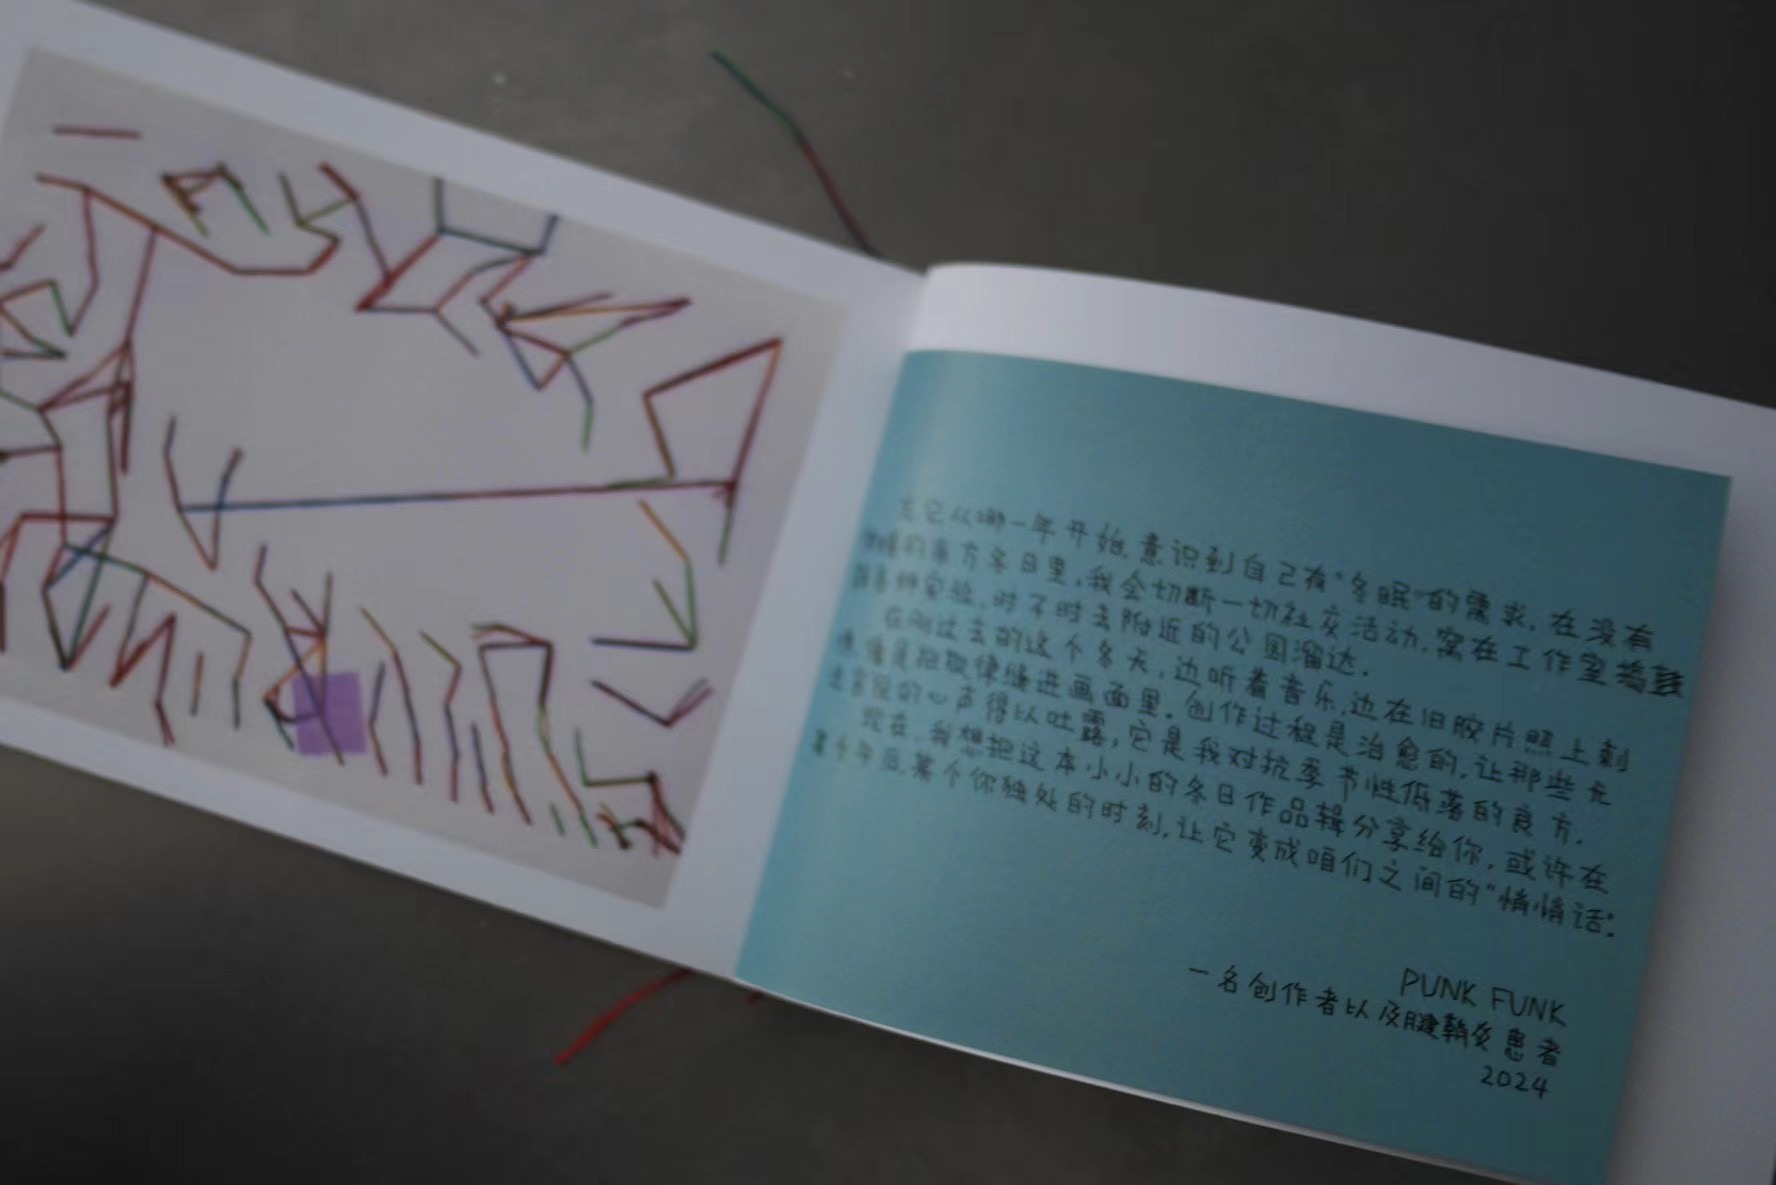 忘记从哪一年开始,意识到自己有“冬眠”的需求,在没有
的南方冬日里,我会切断一切社交活动,窝在工作室捣鼓
种实验,时不时去附近的公园溜达.
在刚过去的这个冬天,边听着音乐,边在旧胶片照上刺
情绪缝进画面里.创作过程是治愈的,让那些无
的心声得以吐露,它是我对抗季节性低落的良方.
现在,我想把这本小小的冬日作品辑分享给你,或许在
某个午后,某个你独处的时刻,让它变成咱们之间的“悄悄话”.
PUNK FUNK
一名创作者以及腱鞘炎患者
2024